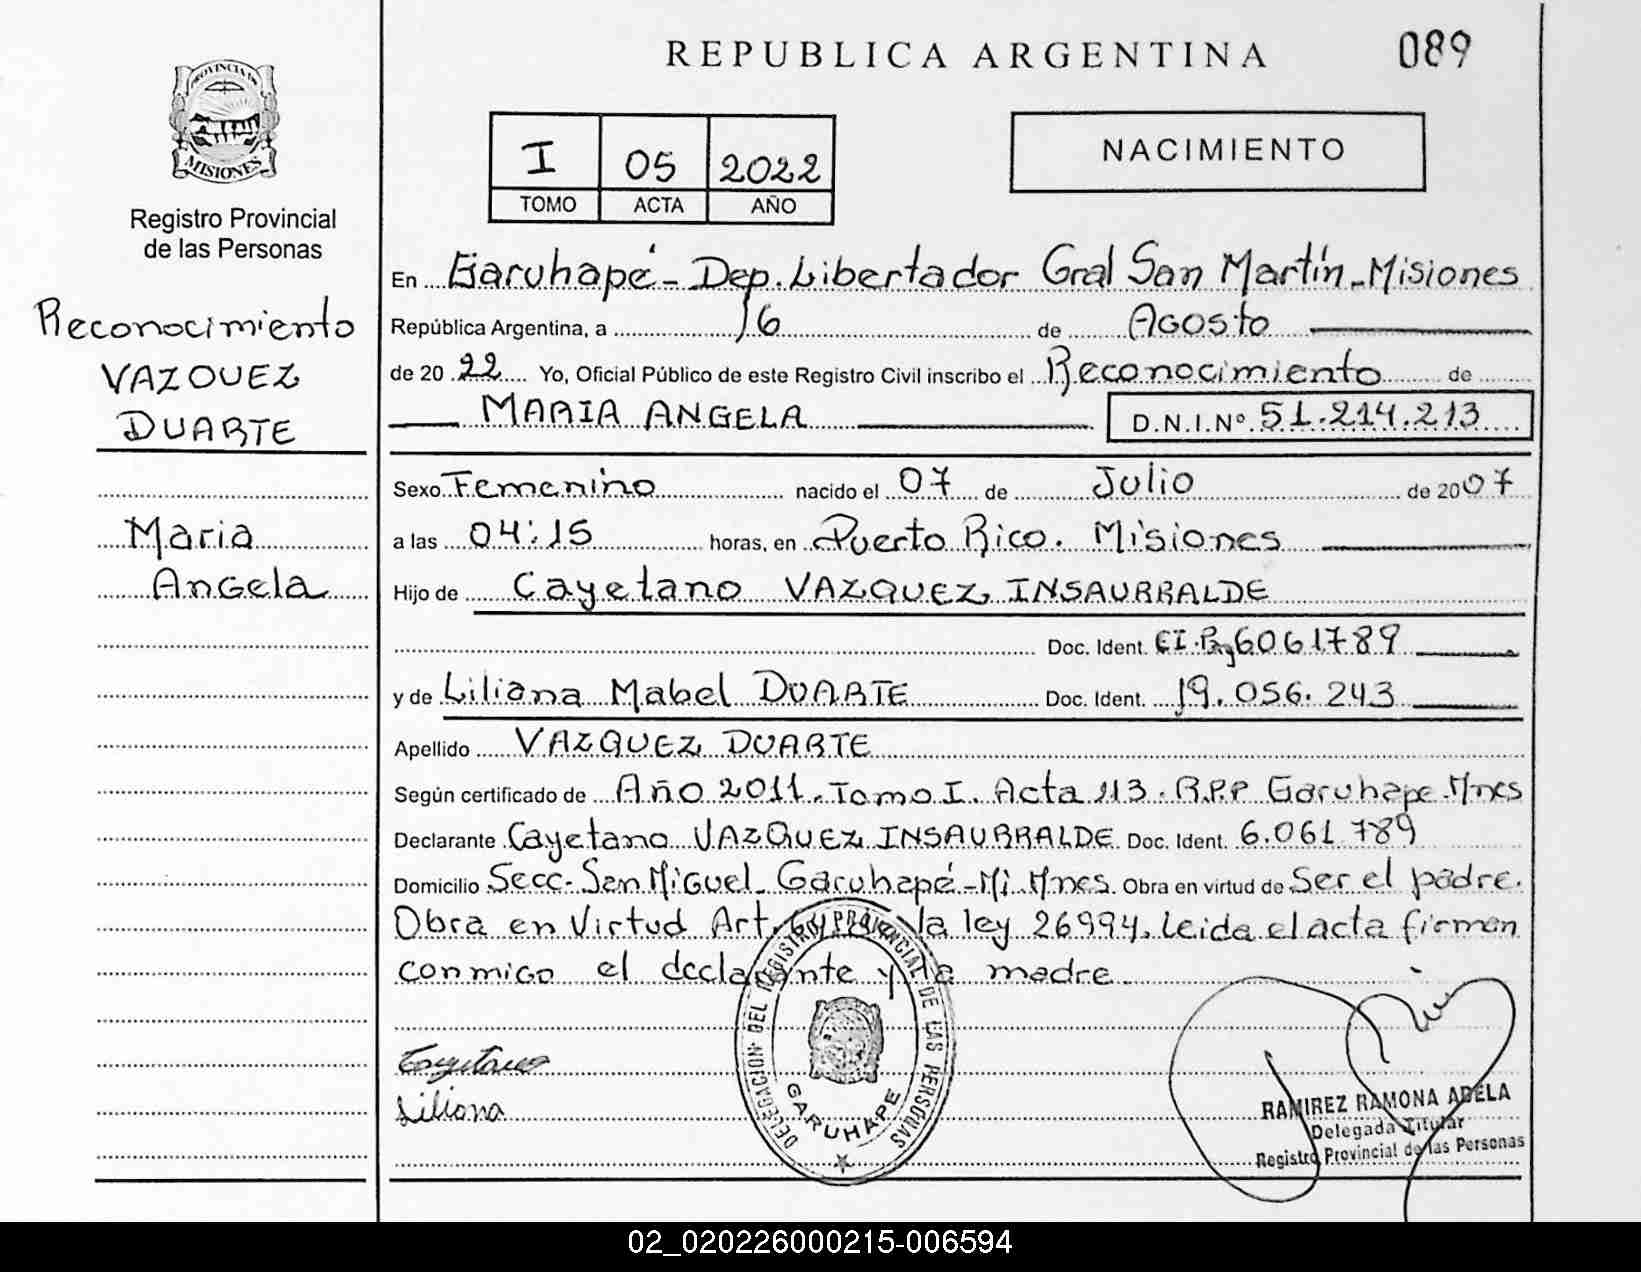 REPUBLICA ARGENTINA
089
PROVINCIA DE
MISIONES
Registro Provincial
de las Personas
I 05 2022
TOMO ACTA AÑO
NACIMIENTO
Reconocimiento
VAZQUEZ
DUARTE
Maria
Angela
En Garuhapé - Dep. Libertador Gral San Martín - Misiones
República Argentina, a 16 de Agosto
de 2022 Yo, Oficial Público de este Registro Civil inscribo el Reconocimiento de
MARIA ANGELA D.N.I.Nº 51.214.213
Sexo Femenino nacido el 07 de Julio de 2007
a las 04:15 horas, en Puerto Rico. Misiones
Hijo de Cayetano VAZQUEZ INSAURRALDE
Doc. Ident. CI.Pgy 6061789
y de Liliana Mabel DUARTE Doc. Ident. 19.056.243
Apellido VAZQUEZ DUARTE
Según certificado de Año 2011. Tomo I. Acta 113. R.P.P Garuhape. Mnes
Declarante Cayetano VAZQUEZ INSAURRALDE Doc. Ident. 6.061.789
Domicilio Secc. San Miguel - Garuhapé - Mí. Mnes. Obra en virtud de Ser el padre.
Obra en Virtud Art. la ley 26994. Leida el acta firman
conmigo el declarante y la madre.
Cayetano
Liliana
DELEGACION DEL REGISTRO PROVINCIAL DE LAS PERSONAS
GARUHAPE
RAMIREZ RAMONA ADELA
Delegada Titular
Registro Provincial de las Personas
02_020226000215-006594